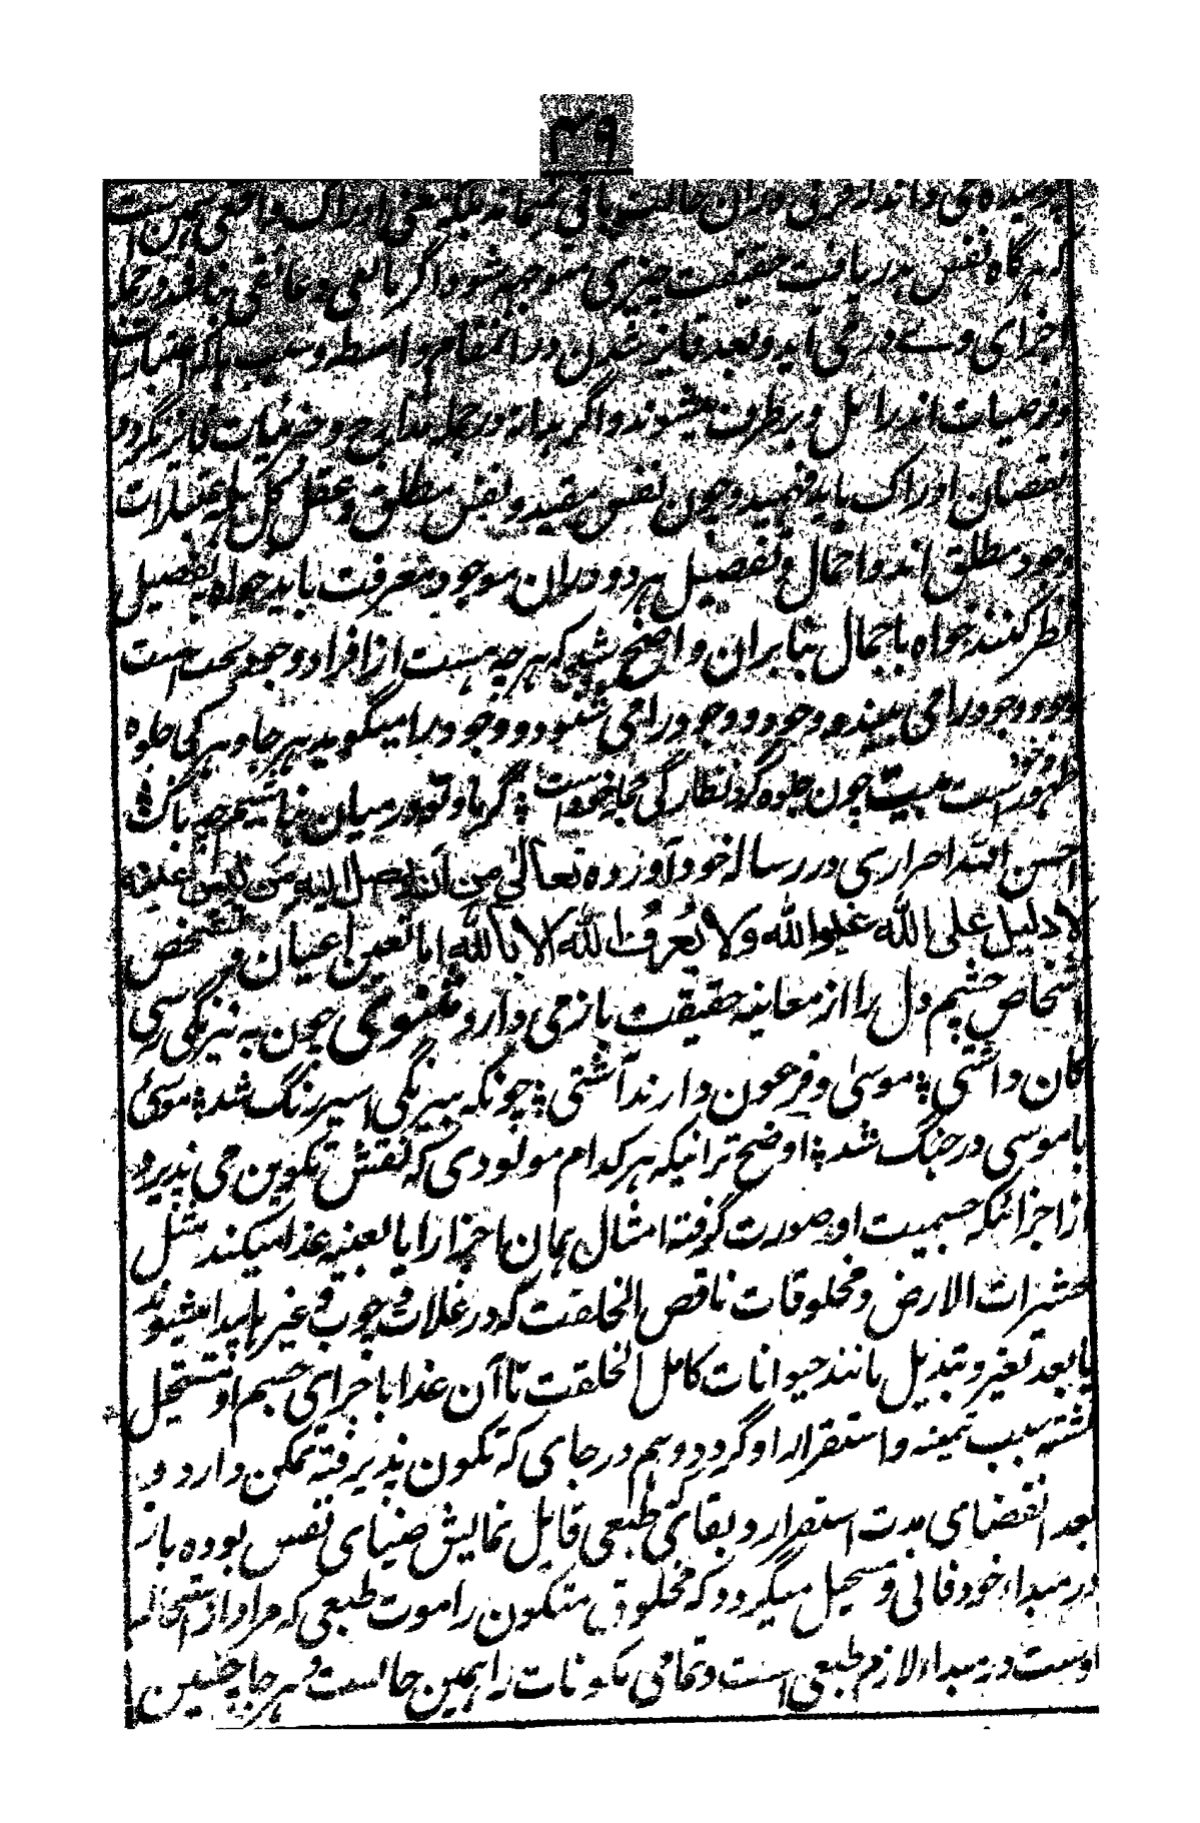 ۴۹
که هرگاه نفس بدریافت حقیقت چیزی متوجه شود اگر مانعی و عائقی نباشد در جمله
اجزای وے در می آید و بعد فائز شدن در انمقام واسطه و سبب
و فرضیات اند زائل و برطرف میشوند و اگر بدانه در جمله مدارج و جزئیات فائز نگردد
نقصان ادراک باید فهمید و چون نفس مقید و نفس مطلق و عقل کل
وجود مطلق اند و اجمال و تفصیل هر دو دران موجود معرفت باید خواه به تفصیل
نظر کنند خواه باجمال بنابران واضح شد که هر چه هست از افراد وجود بحت است
وجود وجود را می بیند و وجود وجود را می شنود و وجود وجود را میگوید هر جا و هر کی جلوه
ظهور اوست بیت چون جلوه گر و نظارگی جمله خود است
احسن الله احراری در رساله خود آورده تعالی من ان یصل الیه من
لا دلیل علی الله علیه الله ولا تعرف الله الا بالله اما تعین اعیان و تشخص
اشخاص چشم دل را از معاینه حقیقت باز می دارد مثنوی چون به بیرنگی رسی
کان داشتی ؛ موسیٰ و فرعون دارند آشتی ؛ چونکه بیرنگی اسیر رنگ شد ؛ موسیٔ
با موسی در جنگ شد ؛ اوضح تر اینکه هر کدام مولودی که نقش تکوین می پذیرد
از اجزائیکه جسمیت او صورت گرفته امثال همان اجزا را یا بعینه غذا میکند مثل
حشرات الارض و مخلوقات ناقص الخلقت که در غلات و چوب و غیرها پیدا میشوند
یا بعد تغیر و تبدیل مانند حیوانات کامل الخلقت تا آن غذا با جزای جسم او مستحیل
گشته سبب تنمیه و استقرار او گردد و هم در جای که تکون پذیرفته تمکن دارد و
بعد انقضای مدت استقرار و بقای طبعی قابل نمایش ضیای نفس بوده باز
در مبداء خود فانی و مستحیل میگردد که مخلوق متکون را موت طبعی که مراد از استحاله
اوست در مبداء لازم طبعی است و تمامی مکونات را همین حالست و هر جا چنین